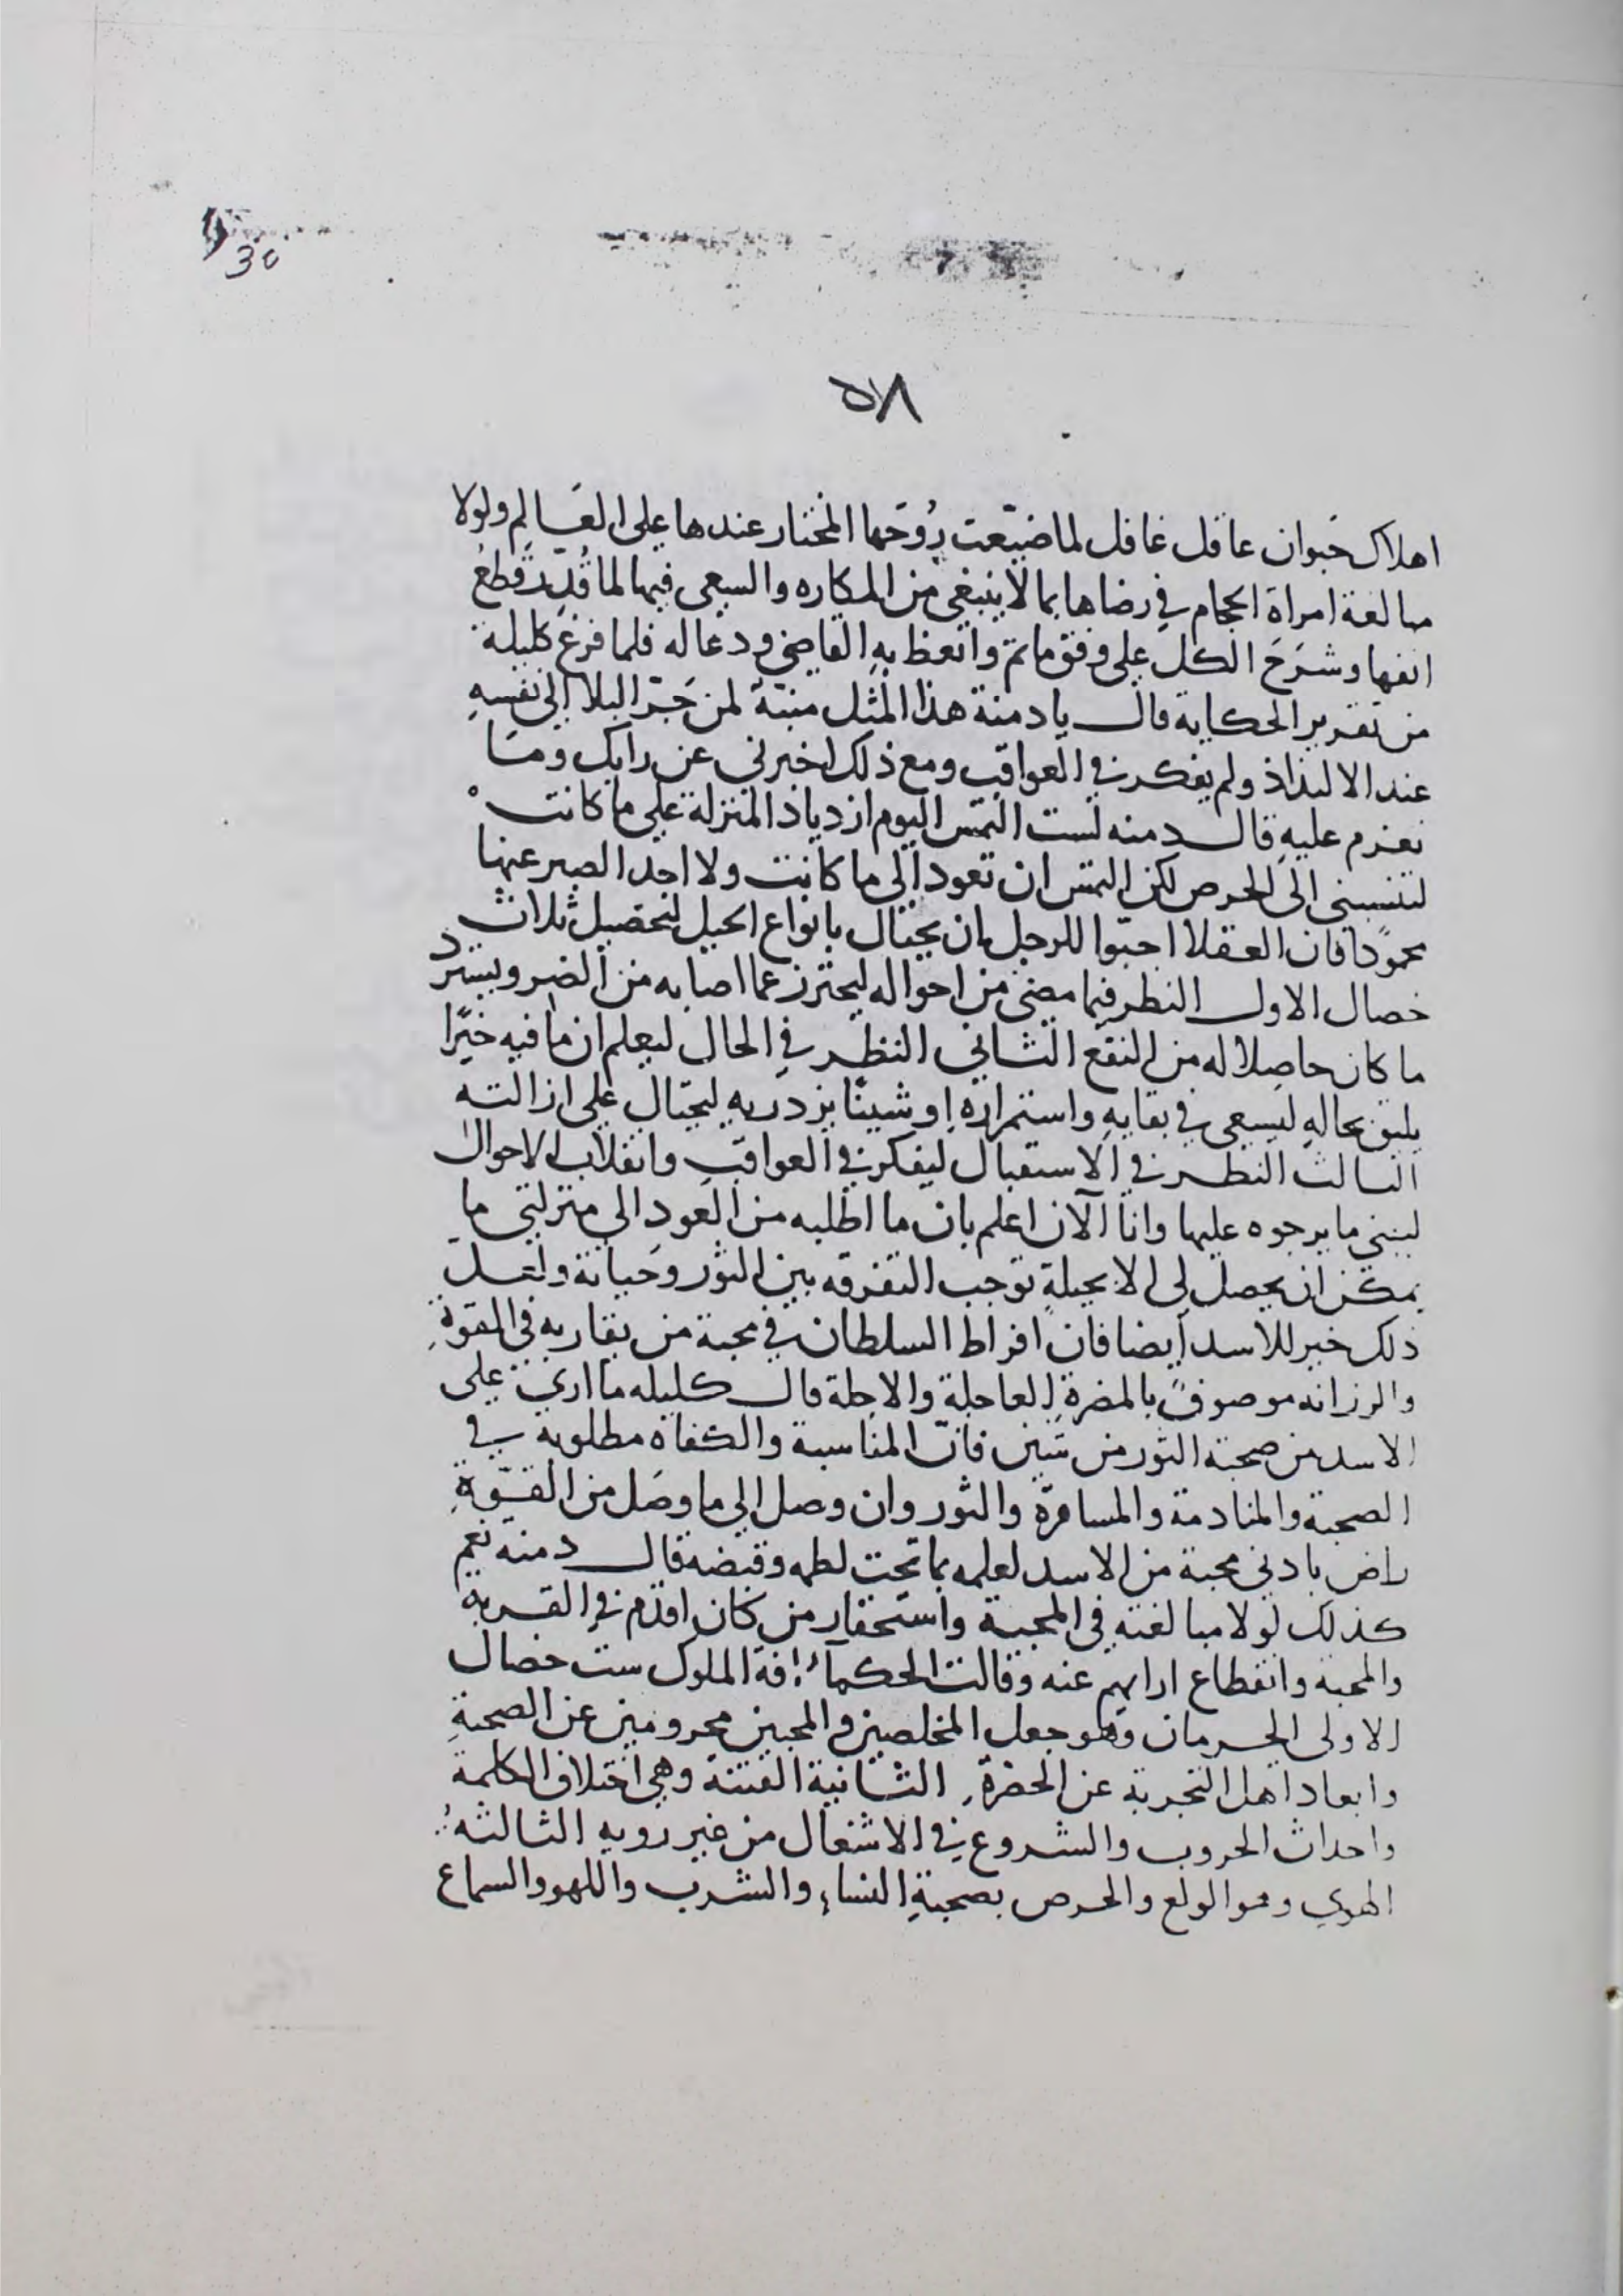 ٥٧٨
اهلاك حيوان عاقل غافل لما ضيّعت رُوحَها المختار عندها على العَالِم ولولا
مبالغة امراة الحجام في رضاها بما لا ينبغي من المكاره والسعى فيها لما قُدِّدَ قطعُ
انفها وشرَحَ الكل على وفق ما تم واتعظ به القاضى ودعا له فلما فرغ كليلة
من تقرير الحكاية قال يا دمنة هذا المثل منبّة لمن جَرّ البلا الى نفسهِ
عند الالتذاذ ولم يفكر في العواقب ومع ذلك اخبرنى عن رايك ومَا
تعزم عليهِ قال دمنه لست التمس اليوم ازدياد المنزلة على ما كانت
لتنسبنى الى الحرص لكن التمس ان تعود الى ما كانت ولا اجد الصبر عنها
محمودًا فان العقلا احبّوا للرجل بان يحتال بانواع الحيل لتحصيل ثلاث
خصال الاول النظر فيما مضى من احواله ليحترز عما اصابه من الضر ويسترد
ما كان حاصلا له من النفع الثانى النظر في الحال ليعلم ان ما فيه خيرًا
يليق بحالهِ ليسعى في بقايهِ واستمراره او شينًا يزدريه ليحتال على ازالته
الثالث النظر في الاستقبال ليفكر في العواقب وانقلاب الاحوال
ليبنى ما يرجوه عليها وانا الآن اعلم بان ما اطلبه من العود الى منزلتى ما
يمكن ان يحصل لى الا بحيلةٍ توجب التفرقه بين الثور وحياته ولعل
ذلك خير للاسد أيضا فان افراط السلطان في محبة من يقاربه فى القوةِ
والرزانه موصوفً بالمضرة العاجلة والاجلة قال كليله ما ارى على
الاسد من صحبة الثور من شين فانّ المناسبة والكفاة مطلوبه في
الصحبة والمنادمة والمسافرة والثور وان وصل الى ما وصَل من القوّةِ
راض بادنى محبة من الاسد لعلمه بما تحت لطمه وقبضه قال دمنه نعم
كذلك لولا مبالغته فى المحبة واستحقار من كان اقدم في القربه
والمحبة وانقطاع ارايهم عنه وقالت الحكمآء افة الملوك ست خصال
الاولى الحرمان وهو جعل المخلصين والمحبين محرومين عن الصحبةِ
وابعاد اهل التجربة عن الحضرةِ الثانية الفتنة وهي اختلاف الكلمة
واحداث الحروب والشروع في الاشغال من غير رويه الثالثه
الهوي وهو الولع والحرص بصحبةِ النساءِ والشرب واللهو والسماع